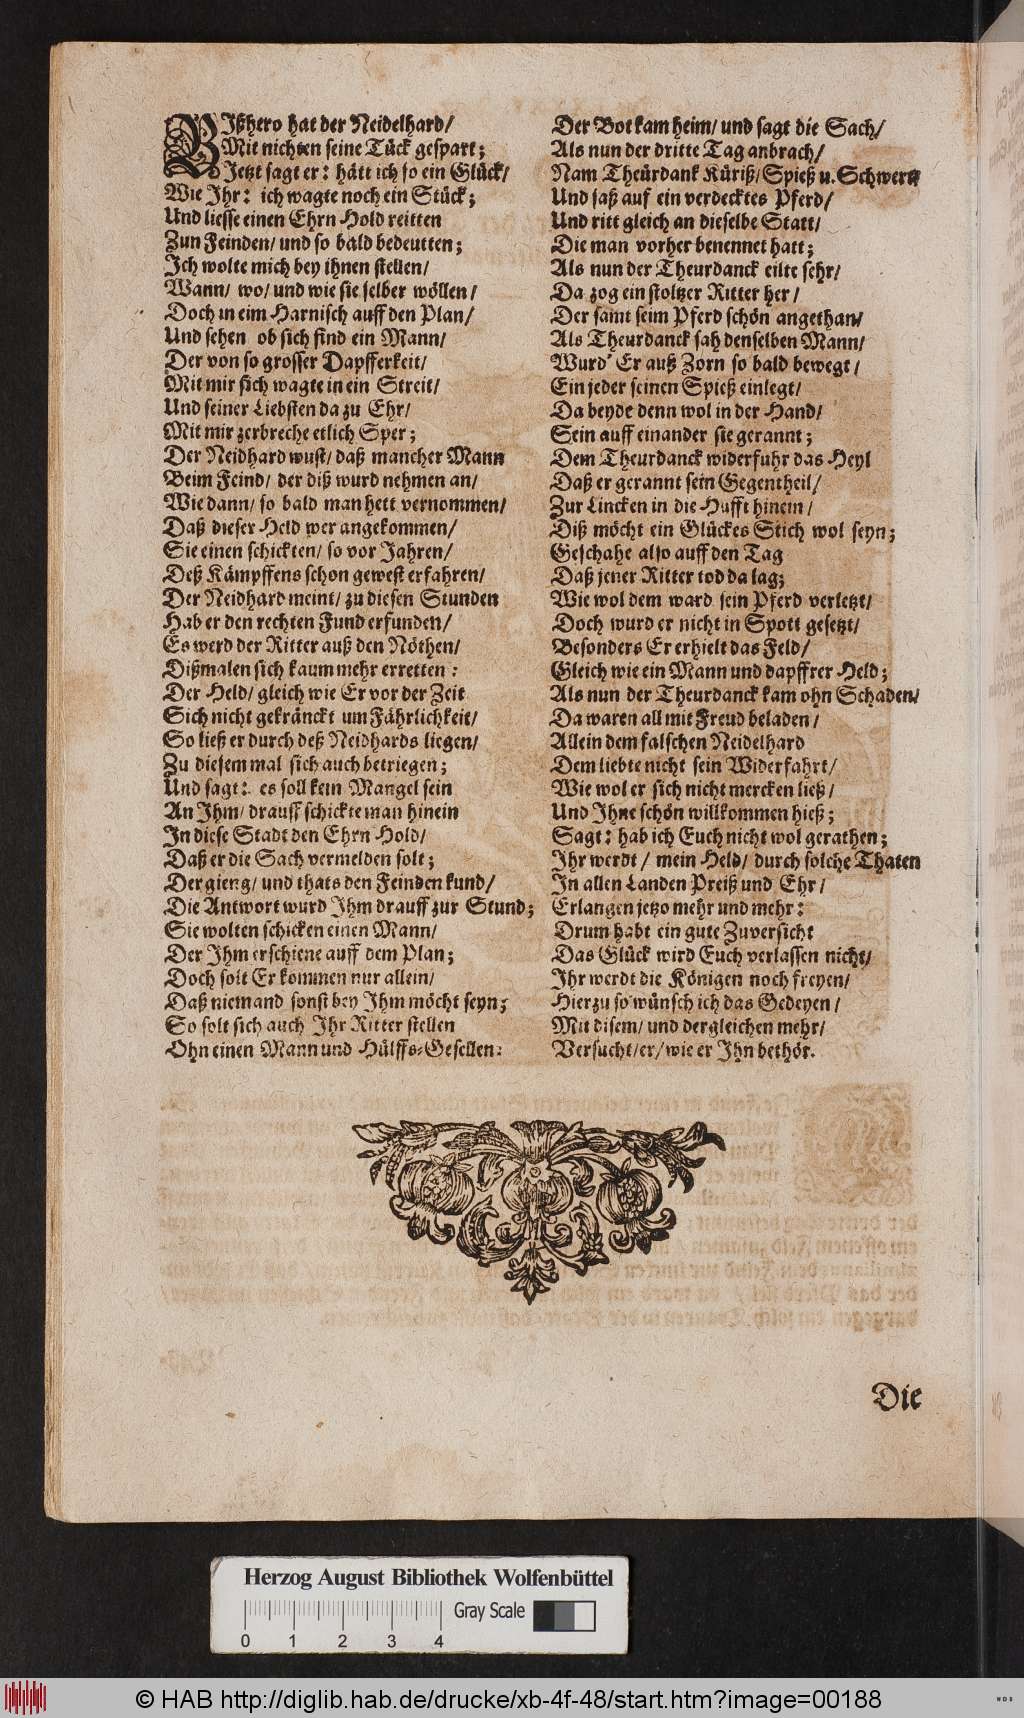 BIßhero hat der Neidelhard/
Mit nichten seine Tück gespart;
Jetzt sagt er: hätt ich so ein Glück/
Wie Ihr: ich wagte noch ein Stück;
Und liesse einen Ehrn Hold reitten
Zun Feinden/ und so bald bedeutten;
Ich wolte mich bey ihnen stellen/
Wann/ wo/ und wie sie selber wöllen/
Doch in eim Harnisch auff den Plan/
Und sehen ob sich find ein Mann/
Der von so grosser Dapfferkeit/
Mit mir sich wagte in ein Streit/
Und seiner Liebsten da zu Ehr/
Mit mir zerbreche etlich Sper;
Der Neidhard wust/ daß mancher Mann
Beim Feind/ der diß wurd nehmen an/
Wie dann/ so bald man hett vernommen/
Daß dieser Held wer angekommen/
Sie einen schickten/ so vor Jahren/
Deß Kämpffens schon gewest erfahren/
Der Neidhard meint/ zu diesen Stunden
Hab er den rechten Fund erfunden/
Es werd der Ritter auß den Nöthen/
Dißmalen sich kaum mehr erretten:
Der Held/ gleich wie Er vor der Zeit
Sich nicht gekränckt um Fährlichkeit/
So ließ er durch deß Neidhards liegen/
Zu diesem mal sich auch betriegen;
Und sagt: es soll kein Mangel sein
An Ihm/ drauff schickte man hinein
In diese Stadt den Ehrn Hold/
Daß er die Sach vermelden solt;
Der gieng/ und thats den Feinden kund/
Die Antwort wurd Ihm drauff zur Stund;
Sie wolten schicken einen Mann/
Der Ihm erschiene auff dem Plan;
Doch solt Er kommen nur allein/
Daß niemand sonst bey Ihm möcht seyn;
So solt sich auch Ihr Ritter stellen
Ohn einen Mann und Hülffs-Gesellen:
Der Bot kam heim/ und sagt die Sach/
Als nun der dritte Tag anbrach/
Nam Theürdank Küriß/ Spieß u. Schwert
Und saß auf ein verdecktes Pferd/
Und ritt gleich an dieselbe Statt/
Die man vorher benennet hatt;
Als nun der Theurdanck eilte sehr/
Da zog ein stoltzer Ritter her/
Der samt seim Pferd schön angethan/
Als Theurdanck sah denselben Mann/
Wurd' Er auß Zorn so bald bewegt/
Ein jeder seinen Spieß einlegt/
Da beyde denn wol in der Hand/
Sein auff einander sie gerannt;
Dem Theurdanck widerfuhr das Heyl
Daß er gerannt sein Gegentheil/
Zur Lincken in die Hufft hinein/
Diß möcht ein Glückes Stich wol seyn;
Geschahe also auff den Tag
Daß jener Ritter tod da lag;
Wie wol dem ward sein Pferd verletzt/
Doch wurd er nicht in Spott gesetzt/
Besonders Er erhielt das Feld/
Gleich wie ein Mann und dapffrer Held;
Als nun der Theurdanck kam ohn Schaden/
Da waren all mit Freud beladen/
Allein dem falschen Neidelhard
Dem liebte nicht sein Widerfahrt/
Wie wol er sich nicht mercken ließ/
Und Ihne schön willkommen hieß;
Sagt: hab ich Euch nicht wol gerathen;
Ihr werdt/ mein Held/ durch solche Thaten
In allen Landen Preiß und Ehr/
Erlangen jetzo mehr und mehr:
Drum habt ein gute Zuversicht
Das Glück wird Euch verlassen nicht/
Ihr werdt die Königen noch freyen/
Hierzu so wünsch ich das Gedeyen/
Mit disem/ und dergleichen mehr/
Versucht/er/ wie er Ihn bethör.
Die
Herzog August Bibliothek Wolfenbüttel
Gray Scale
0 1 2 3 4
© HAB http://diglib.hab.de/drucke/xb-4f-48/start.htm?image=00188